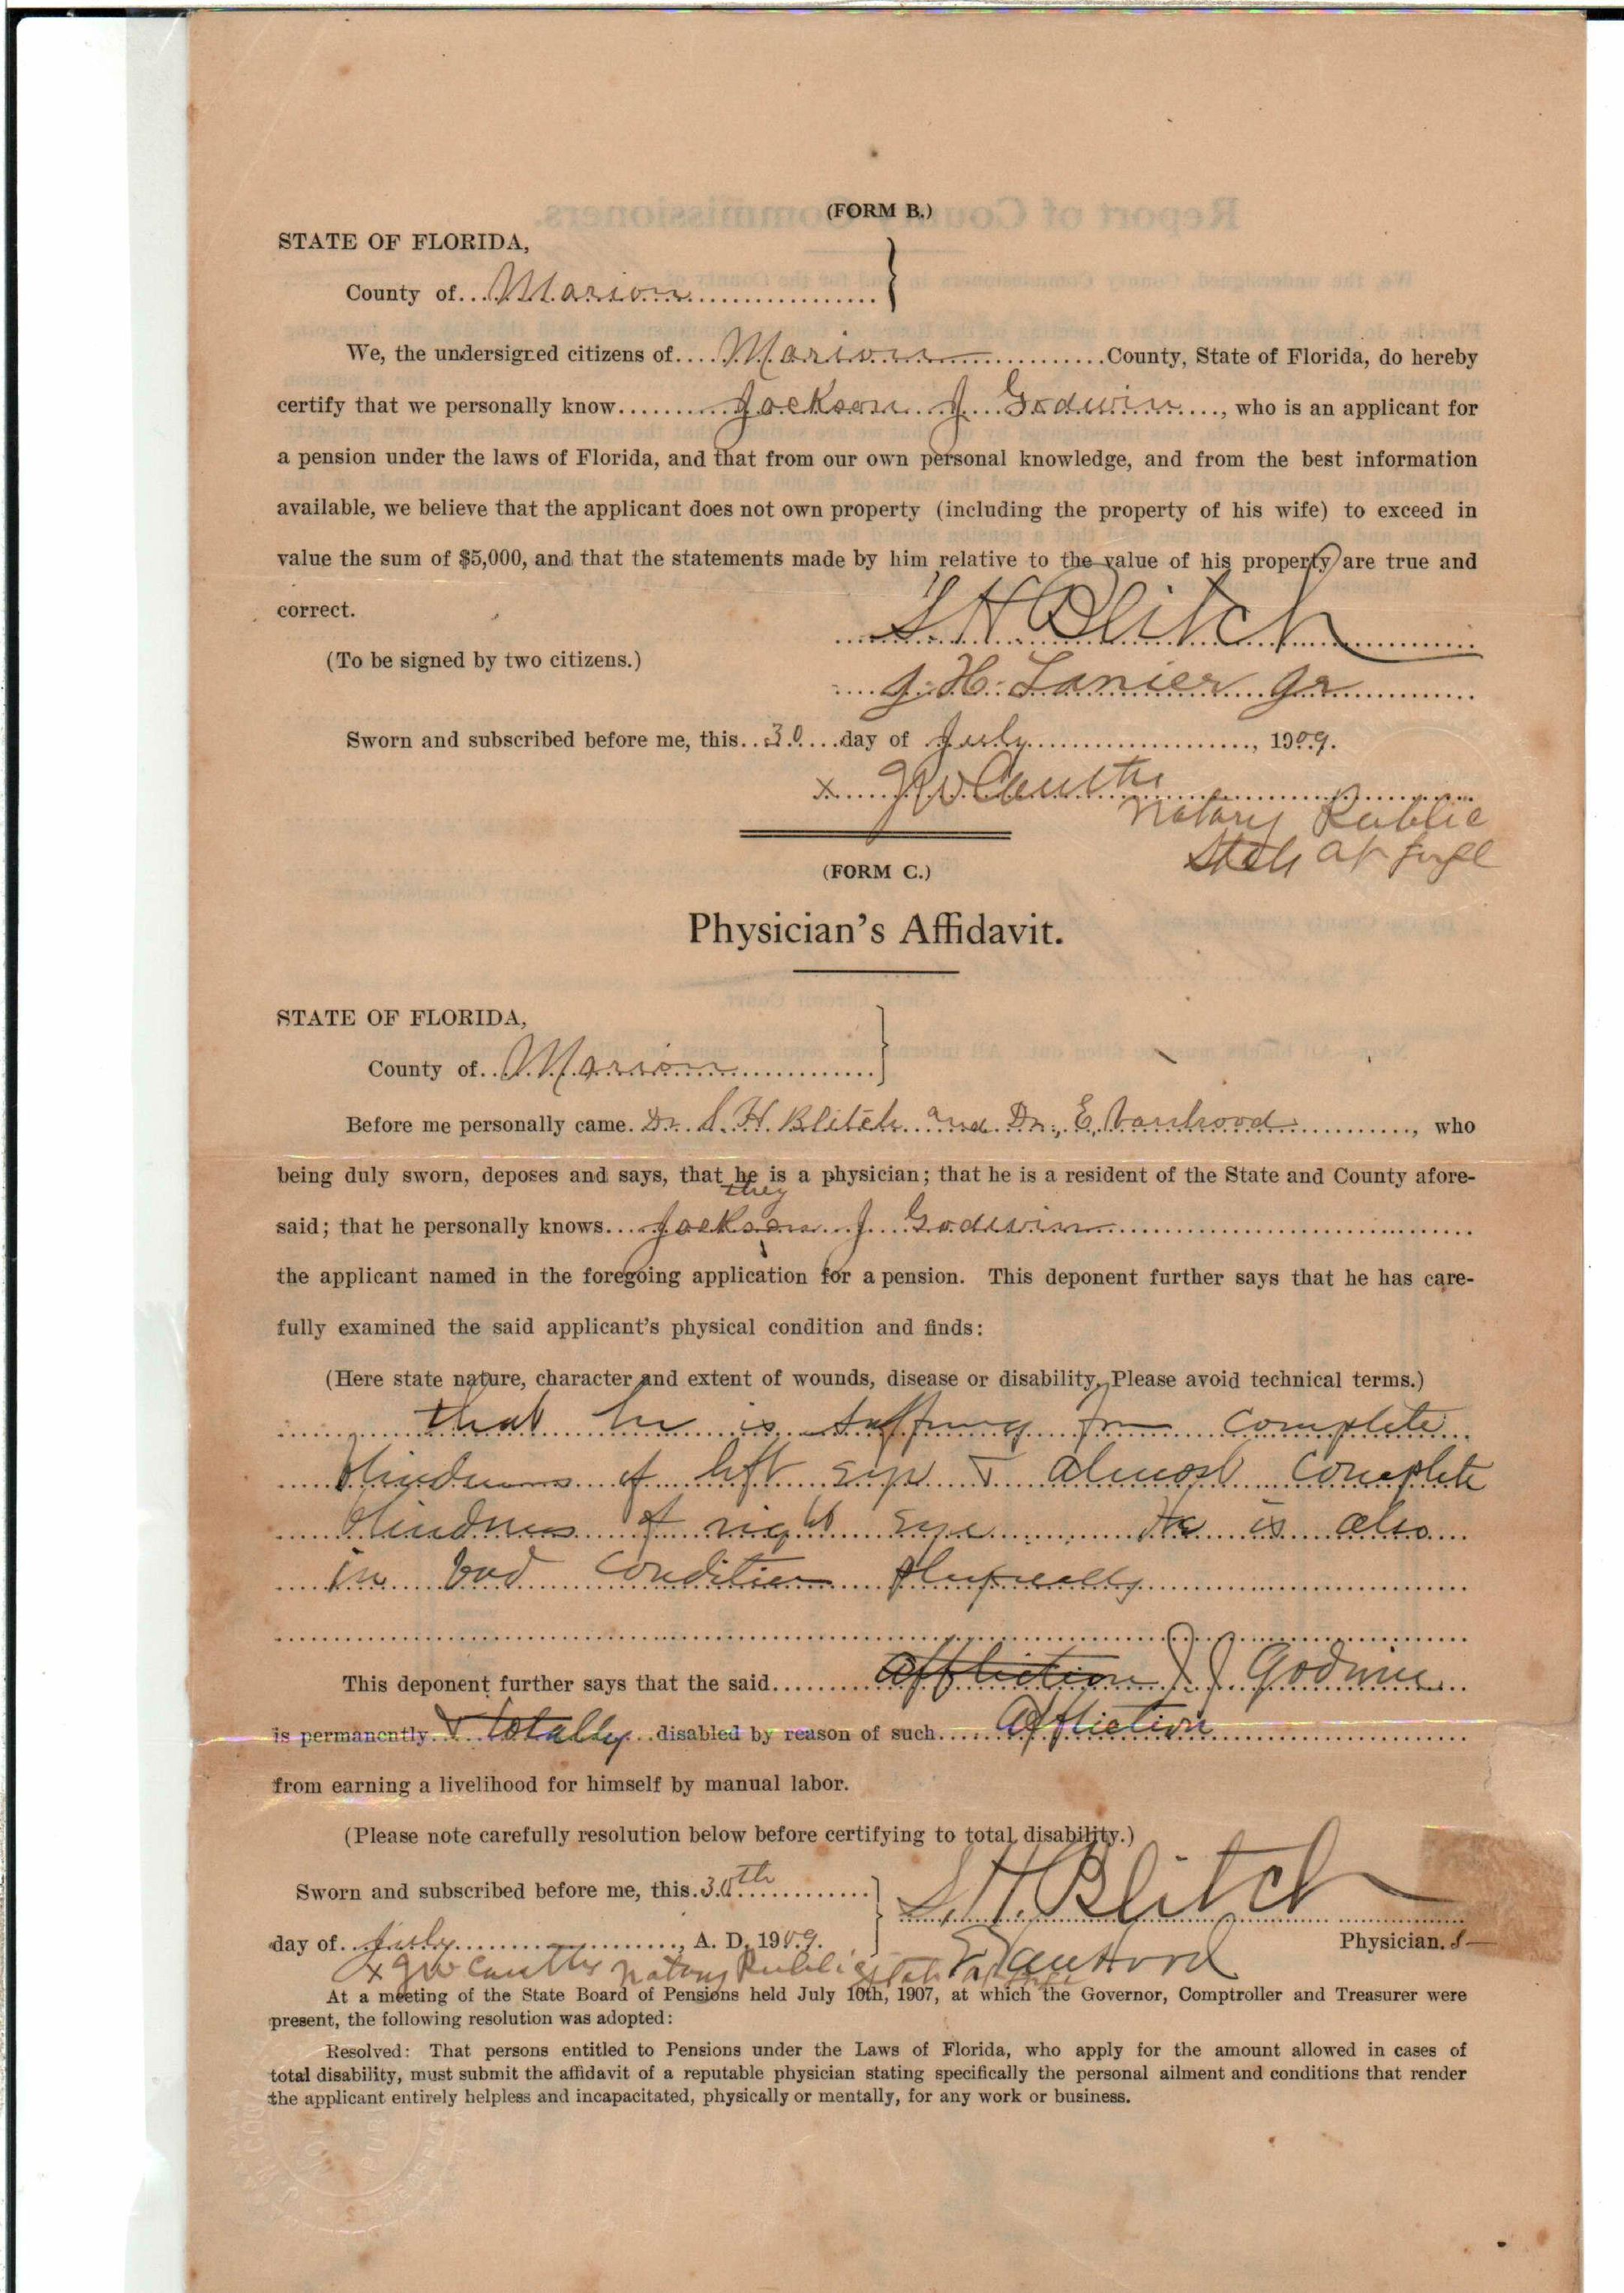 (FORM B.)
STATE OF FLORIDA,
County of Marion
We, the undersigned citizens of Marion County, State of Florida, do hereby
certify that we personally know Jackson J Godwin, who is an applicant for
a pension under the laws of Florida, and that from our own personal knowledge, and from the best information
available, we believe that the applicant does not own property (including the property of his wife) to exceed in
value the sum of $5,000, and that the statements made by him relative to the value of his property are true and
correct.
S H Blitch
(To be signed by two citizens.)
J. H. Lanier Jr
Sworn and subscribed before me, this 30 day of July, 1909.
x
Notary Public
State at
(FORM C.)
Physician's Affidavit.
STATE OF FLORIDA,
County of Marion
Before me personally came Dr. S. H. Blitch and Dr. E. Vanhood, who
being duly sworn, deposes and says, that he is a physician; that he is a resident of the State and County afore-
they
said; that he personally knows Jackson J Godwin
the applicant named in the foregoing application for a pension. This deponent further says that he has care-
fully examined the said applicant's physical condition and finds:
(Here state nature, character and extent of wounds, disease or disability. Please avoid technical terms.)
that he is suffering from complete
blindness of left eye & almost complete
blindness of right eye. He is also
in bad condition physically
This deponent further says that the said Affliction J J Godwin
is permanently & totally disabled by reason of such Affliction
from earning a livelihood for himself by manual labor.
(Please note carefully resolution below before certifying to total disability.)
Sworn and subscribed before me, this 30th
S. H. Blitch
day of July, A. D. 1909.
Physician.s
x Notary Public State at
E VanHood
At a meeting of the State Board of Pensions held July 10th, 1907, at which the Governor, Comptroller and Treasurer were
present, the following resolution was adopted:
Resolved: That persons entitled to Pensions under the Laws of Florida, who apply for the amount allowed in cases of
total disability, must submit the affidavit of a reputable physician stating specifically the personal ailment and conditions that render
the applicant entirely helpless and incapacitated, physically or mentally, for any work or business.